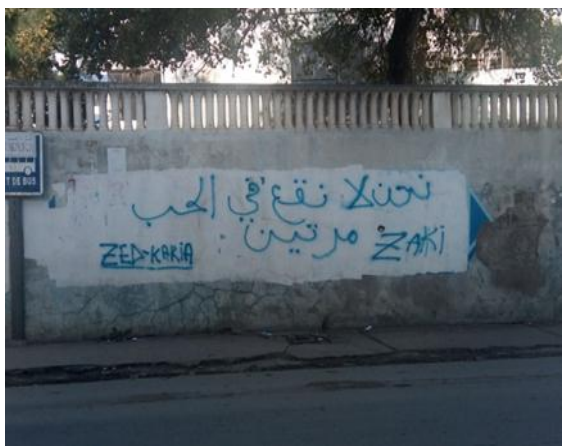 نحن لا نقع في الحب
مرتين
ZAKI
ZED-KARIA
T DE BUS